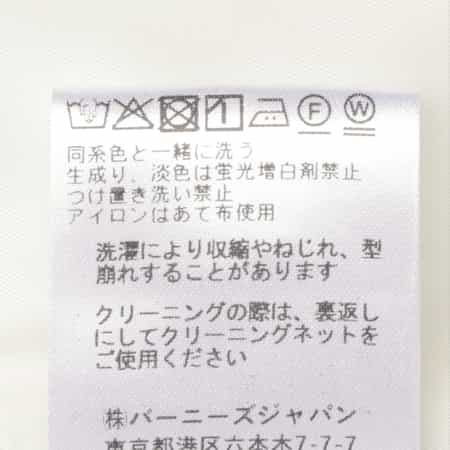 F W
同系色と一緒に洗う
生成り、淡色は蛍光増白剤禁止
つけ置き洗い禁止
アイロンはあて布使用
洗濯により収縮やねじれ、型
崩れすることがあります
クリーニングの際は、裏返し
にしてクリーニングネットを
ご使用ください
㈱バーニーズジャパン
東京都港区六本木7-7-7